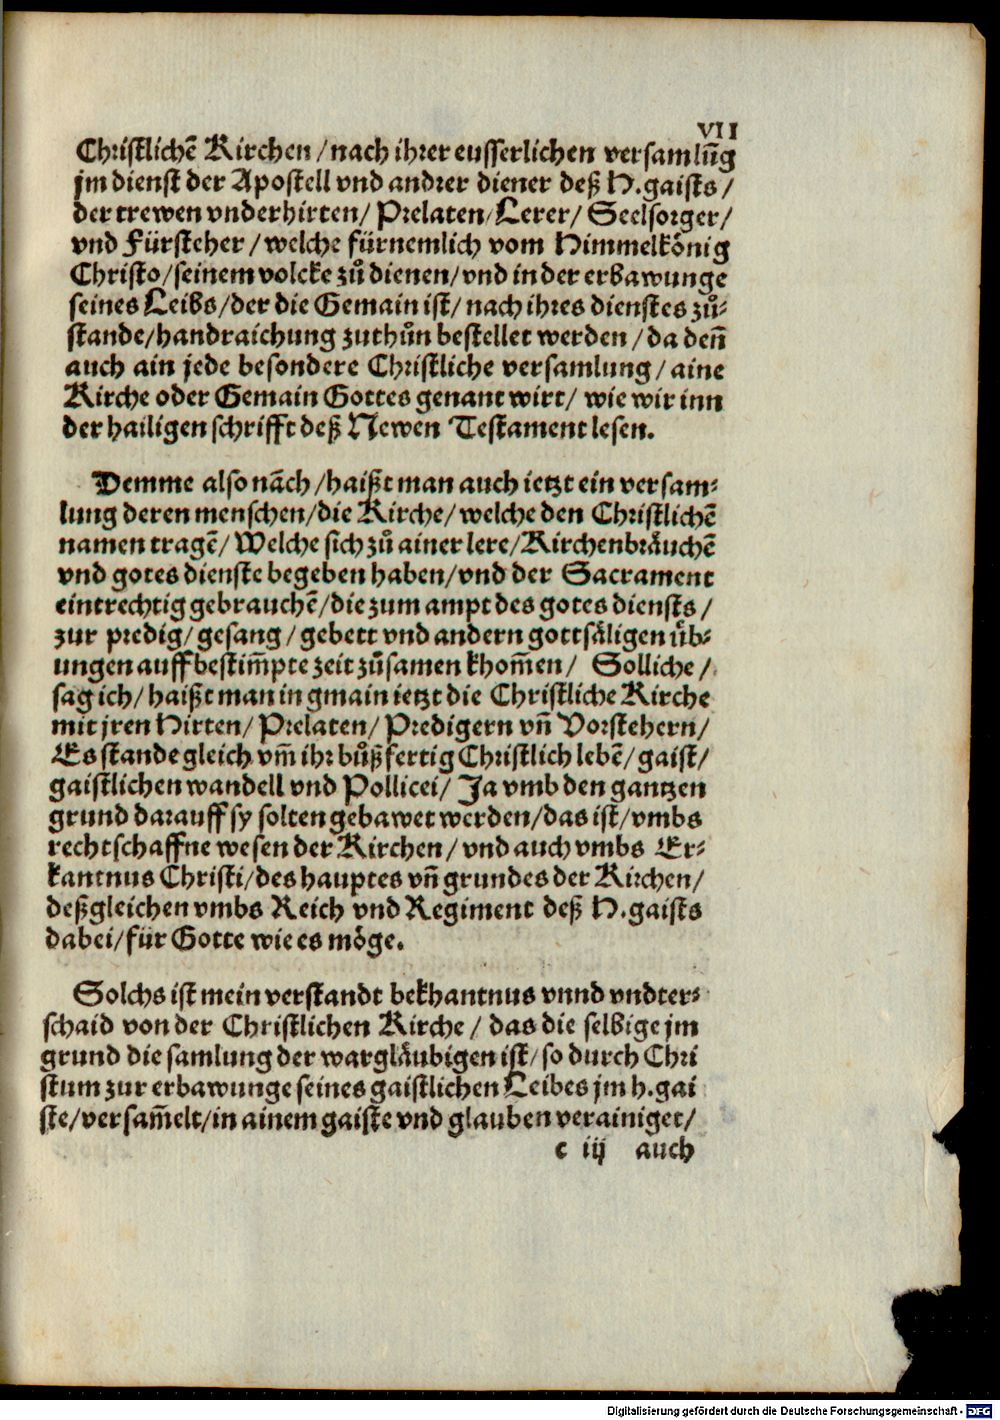 VII
Christlichē Kirchen / nach ihrer eusserlichen versamlūg
jm dienst der Apostell vnd andrer diener deß H. gaists /
der trewen vnderhirten / Prelaten / Lerer / Seelsorger /
vnd Fürsteher / welche fürnemlich vom Himmelkönig
Christo / seinem volcke zů dienen / vnd in der erbawunge
seines Leibs / der die Gemain ist / nach ihres dienstes zů⸗
stande / handraichung zuthůn bestellet werden / da deñ
auch ain jede besondere Christliche versamlung / aine
Kirche oder Gemain Gottes genant wirt / wie wir inn
der hailigen schrifft deß Newen Testament lesen.
Demme also nāch / haißt man auch ietzt ein versam⸗
lung deren menschen / die Kirche / welche den Christlichē
namen tragē / Welche sich zů ainer lere / Kirchenbräuchē
vnd gotes dienste begeben haben / vnd der Sacrament
eintrechtig gebrauchē / die zum ampt des gotes diensts /
zur predig / gesang / gebett vnd andern gottsäligen üb⸗
ungen auff bestim̄pte zeit zůsamen khom̄en / Solliche /
sag ich / haißt man in gmain ietzt die Christliche Kirche
mit jren Hirten / Prelaten / Predigern vñ Vorstehern /
Es stande gleich vm̄ ihr bůßfertig Christlich lebē / gaist /
gaistlichen wandell vnd Pollicei / Ja vmb den gantzen
grund darauff sy solten gebawet werden / das ist / vmbs
rechtschaffne wesen der Kirchen / vnd auch vmbs Er⸗
kantnus Christi / des hauptes vñ grundes der Kirchen /
deßgleichen vmbs Reich vnd Regiment deß H. gaists
dabei / für Gotte wie es möge.
Solchs ist mein verstandt bekhantnus vnnd vndter⸗
schaid von der Christlichen Kirche / das die selbige jm
grund die samlung der wargläubigen ist / so durch Chri
stum zur erbawunge seines gaistlichen Leibes jm h. gai
ste / versam̄elt / in ainem gaiste vnd glauben verainiget /
c iij auch
Digitalisierung gefördert durch die Deutsche Forschungsgemeinschaft - DFG